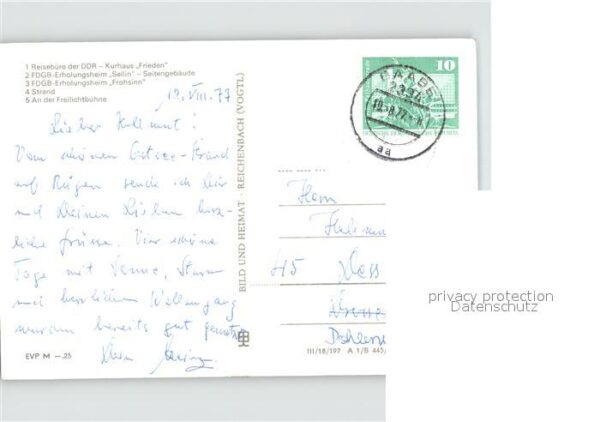 1 Reisebüro der DDR – Kurhaus „Frieden"
2 FDGB-Erholungsheim „Sellin" – Seitengebäude
3 FDGB-Erholungsheim „Frohsinn"
4 Strand
5 An der Freilichtbühne
12. VIII. 77
Lieber Helmut!
Vom schönen Ostsee-Strand
auf Rügen sende ich Dir
und Deinen Lieben herz-
liche Grüsse. Vier schöne
Tage mit Sonne, Sturm
und herrlichem Wellengang
wurden bereits gut
Dein
EVP M –.25
BILD UND HEIMAT · REICHENBACH (VOGTL)
10
BAABE
2337
aa
Herrn
45
III/18/197 A 1/B 445/
privacy protection
Datenschutz